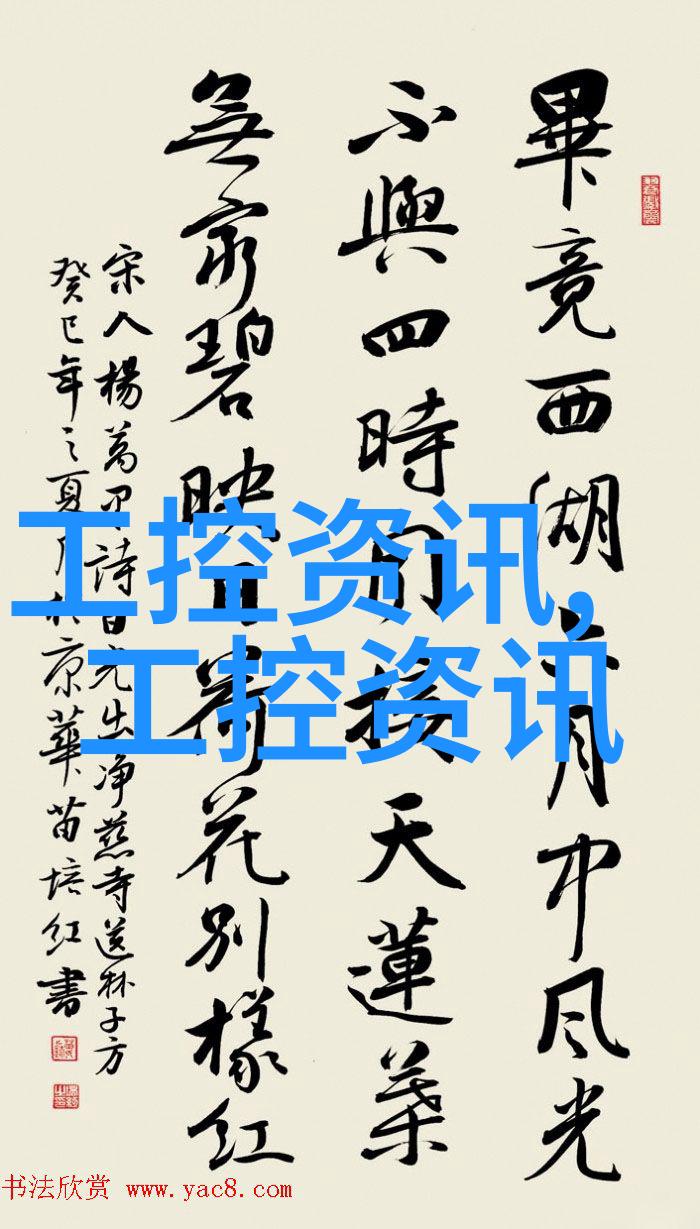 畢竟西湖六月中风光
不與四時同接天蓮葉
無窮碧映日荷花別樣红
宋人楊萬里詩晓出净慈寺送林子方
癸巳年之夏月於京華苗培红書
工控资讯,
工控资讯
书法欣赏 www.yac8.com